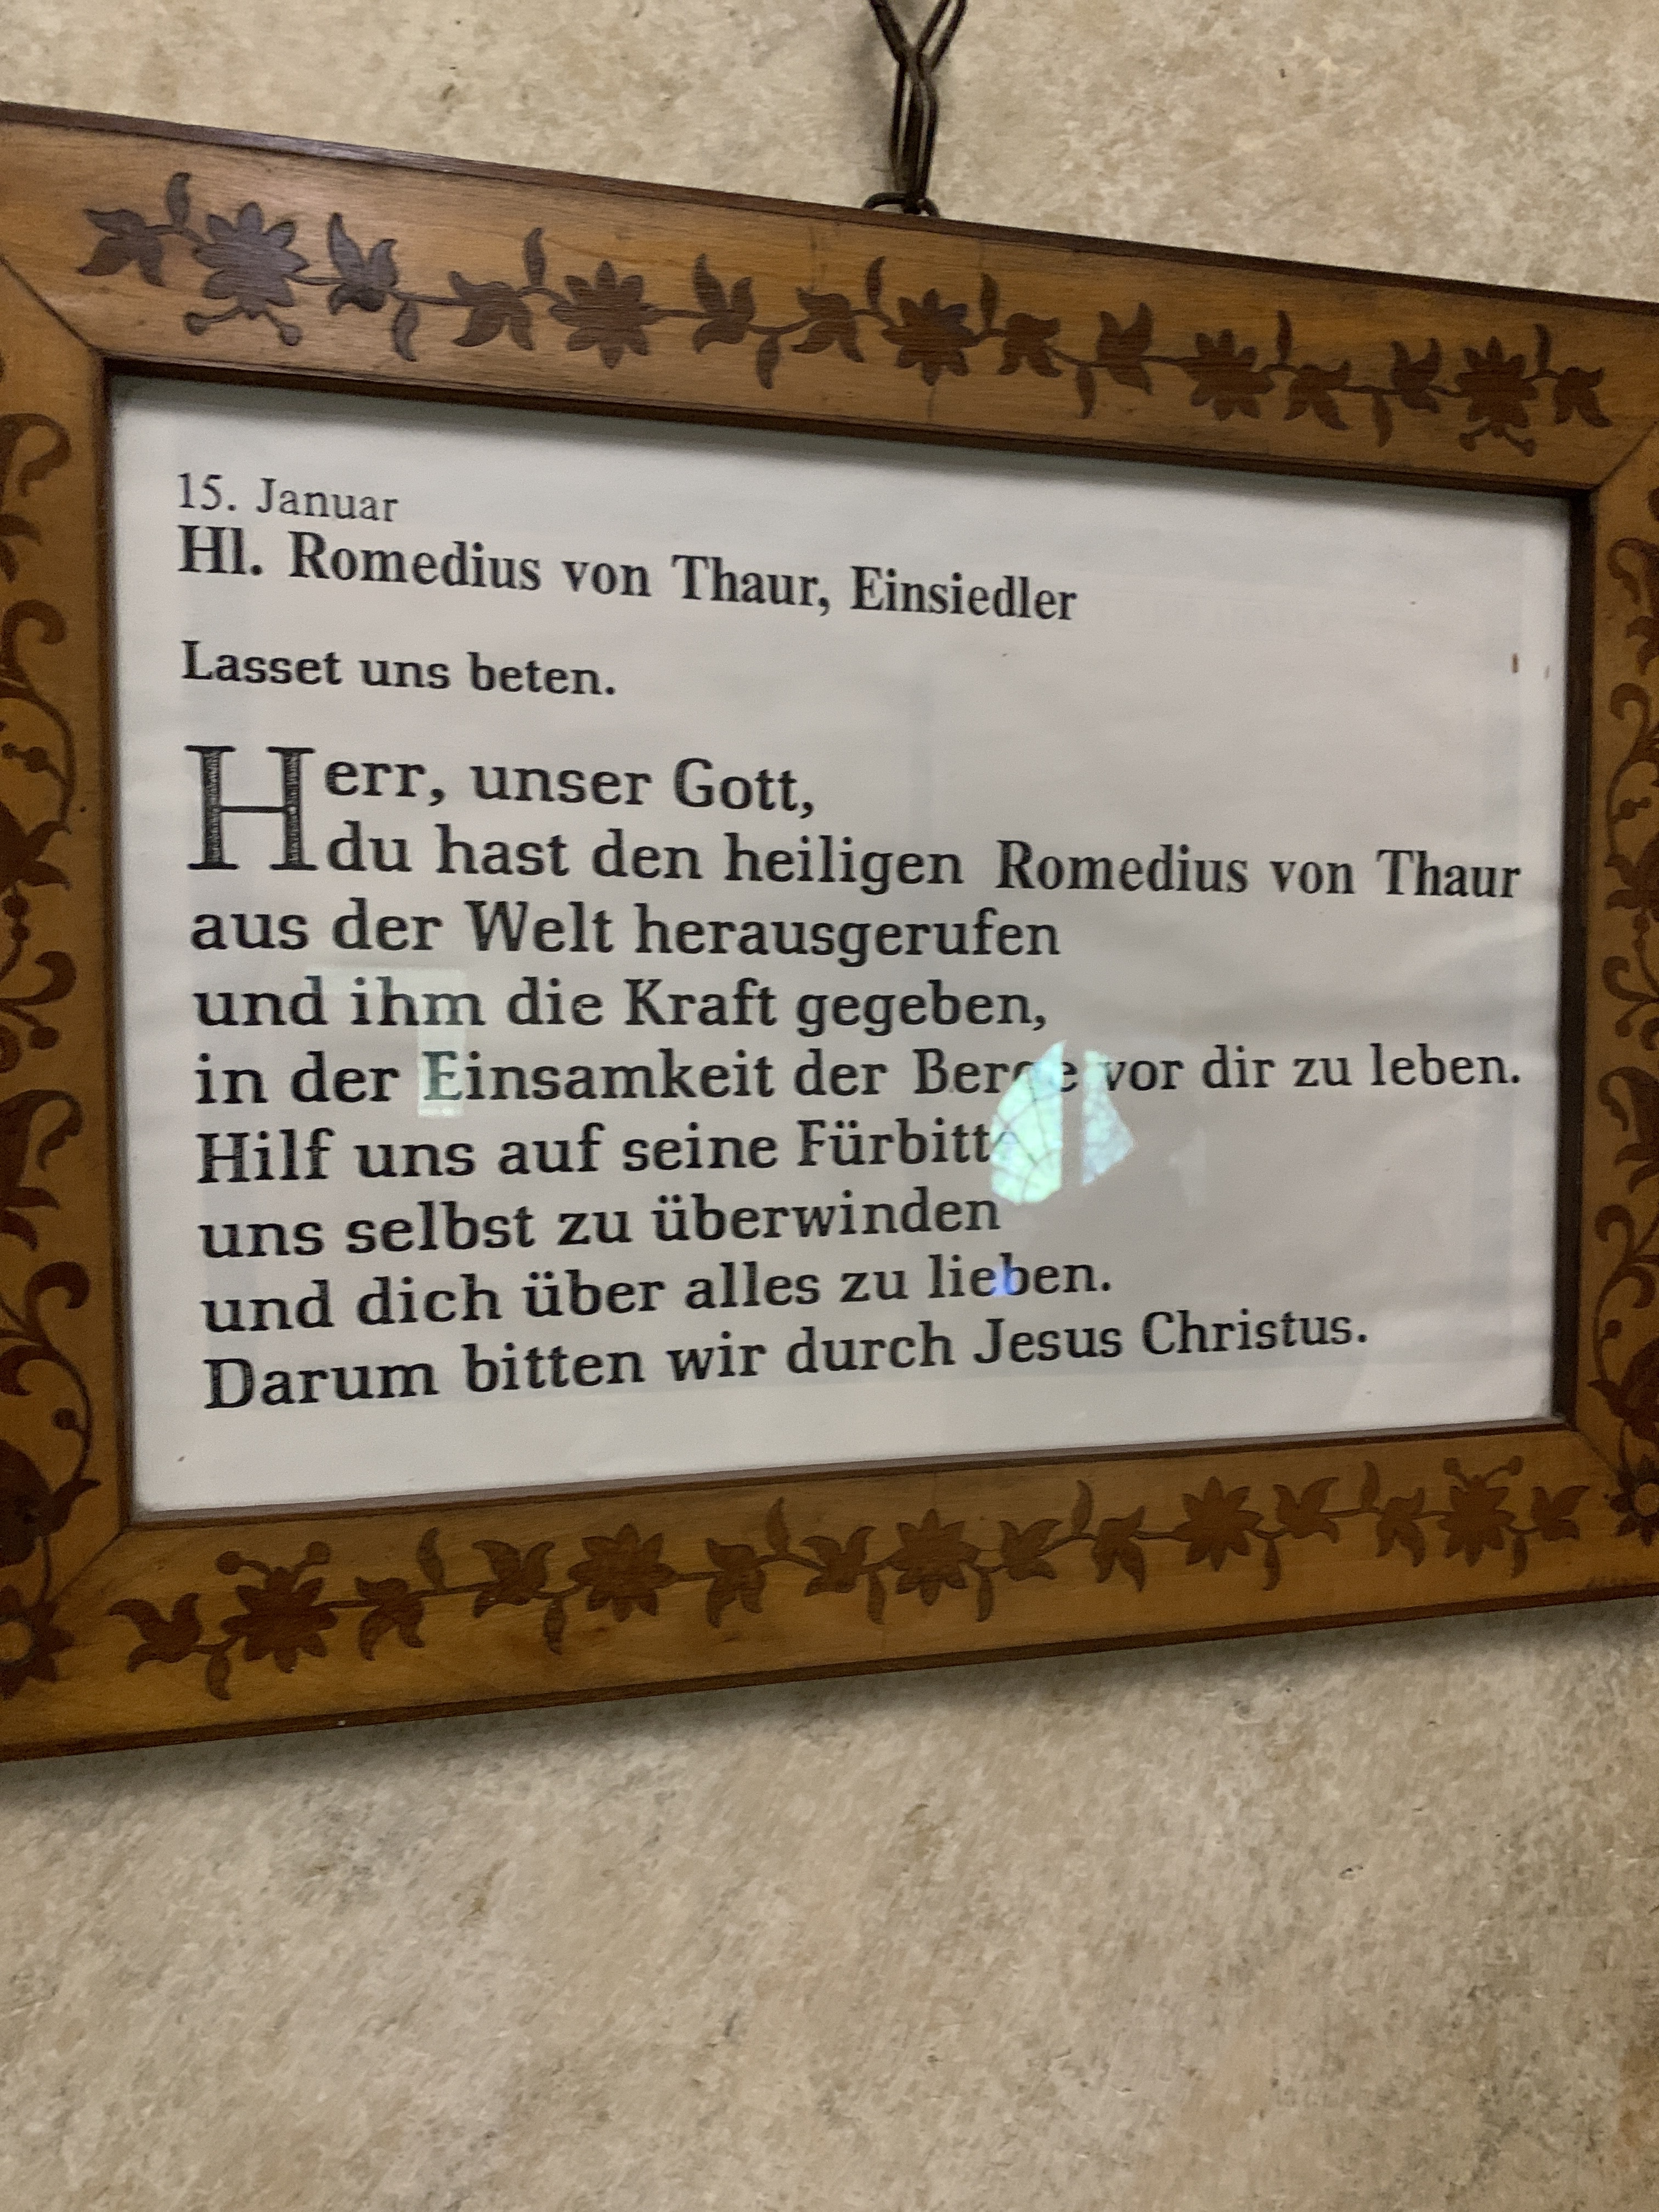 15. Januar
Hl. Romedius von Thaur, Einsiedler
Lasset uns beten.
Herr, unser Gott,
du hast den heiligen Romedius von Thaur
aus der Welt herausgerufen
und ihm die Kraft gegeben,
in der Einsamkeit der Berge vor dir zu leben.
Hilf uns auf seine Fürbitte
uns selbst zu überwinden
und dich über alles zu lieben.
Darum bitten wir durch Jesus Christus.